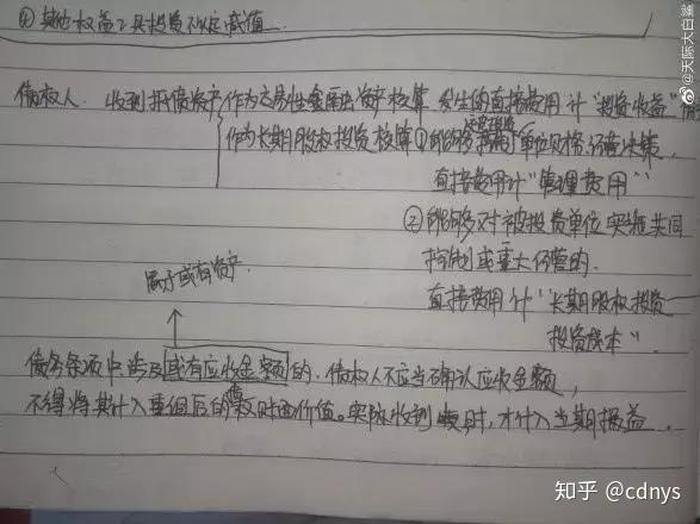 ④其他权益工具投资不计提减值.
债权人. 收到抵债资产作为交易性金融资产核算 发生的直接费用计"投资收益"借
作为长期股权投资核算①能够 单位财务、经营决策,
直接费用计"管理费用"
②能够对被投资单位实施共同
控制或重大经营的.
直接费用计"长期股权投资—
投资成本".
属于或有资产.
债务条项中涉及或有应收金额的. 债权人不应当确认应收金额,
不得将其计入重组后的 账面价值。实际收到 时, 才计入当期损益.
@天际大白鲨
知乎 @cdnys